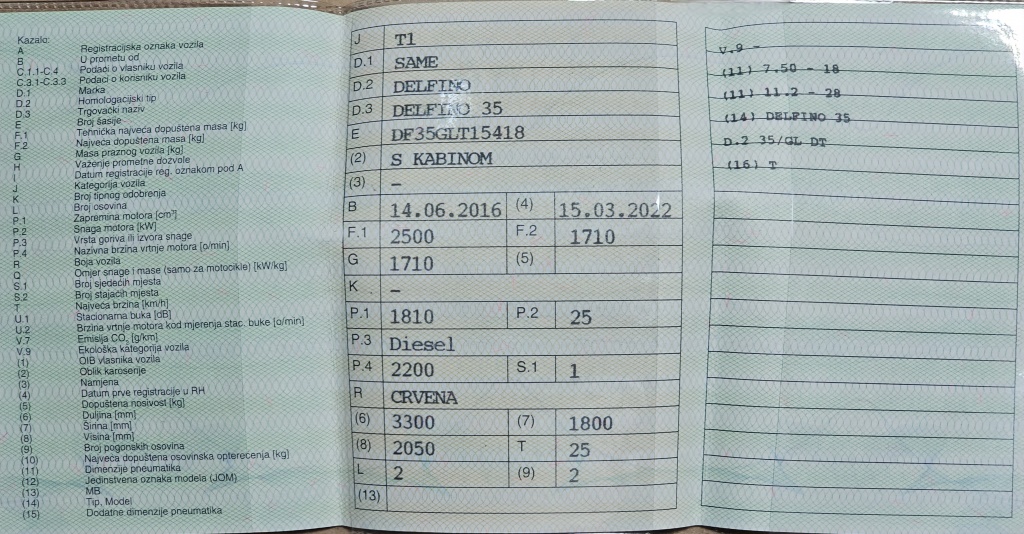 Kazalo:
A Registracijska oznaka vozila
B U prometu od
C.1.1-C.4 Podaci o vlasniku vozila
C.3.1-C.3.3 Podaci o korisniku vozila
D.1 Marka
D.2 Homologacijski tip
D.3 Trgovački naziv
E Broj šasije
F.1 Tehnička najveća dopuštena masa [kg]
F.2 Najveća dopuštena masa [kg]
G Masa praznog vozila [kg]
H Važenje prometne dozvole
I Datum registracije reg. oznakom pod A
J Kategorija vozila
K Broj tipnog odobrenja
L Broj osovina
P.1 Zapremina motora [cm³]
P.2 Snaga motora [kW]
P.3 Vrsta goriva ili izvora snage
P.4 Nazivna brzina vrtnje motora [o/min]
R Boja vozila
Q Omjer snage i mase (samo za motocikle) [kW/kg]
S.1 Broj sjedećih mjesta
S.2 Broj stajaćih mjesta
T Najveća brzina [km/h]
U.1 Stacionarna buka [dB]
U.2 Brzina vrtnje motora kod mjerenja stac. buke [o/min]
V.7 Emisija CO₂ [g/km]
V.9 Ekološka kategorija vozila
(1) OIB vlasnika vozila
(2) Oblik karoserije
(3) Namjena
(4) Datum prve registracije u RH
(5) Dopuštena nosivost [kg]
(6) Duljina [mm]
(7) Širina [mm]
(8) Visina [mm]
(9) Broj pogonskih osovina
(10) Najveća dopuštena osovinska opterećenja [kg]
(11) Dimenzije pneumatika
(12) Jedinstvena oznaka modela (JOM)
(13) MB
(14) Tip, Model
(15) Dodatne dimenzije pneumatika
J T1
D.1 SAME
D.2 DELFINO
D.3 DELFINO 35
E DF35GLUT15418
(2) S KABINOM
(3) –
B 14.06.2016 (4) 15.03.2022
F.1 2500 F.2 1710
G 1710 (5)
K –
P.1 1810 P.2 25
P.3 Diesel
P.4 2200 S.1 1
R CRVENA
(6) 3300 (7) 1800
(8) 2050 T 25
L 2 (9) 2
(13)
V.9 -
(11) 7.50 - 18
(11) 11.2 - 28
(14) DELFINO 35
D.2 35/GL DT
(16) T